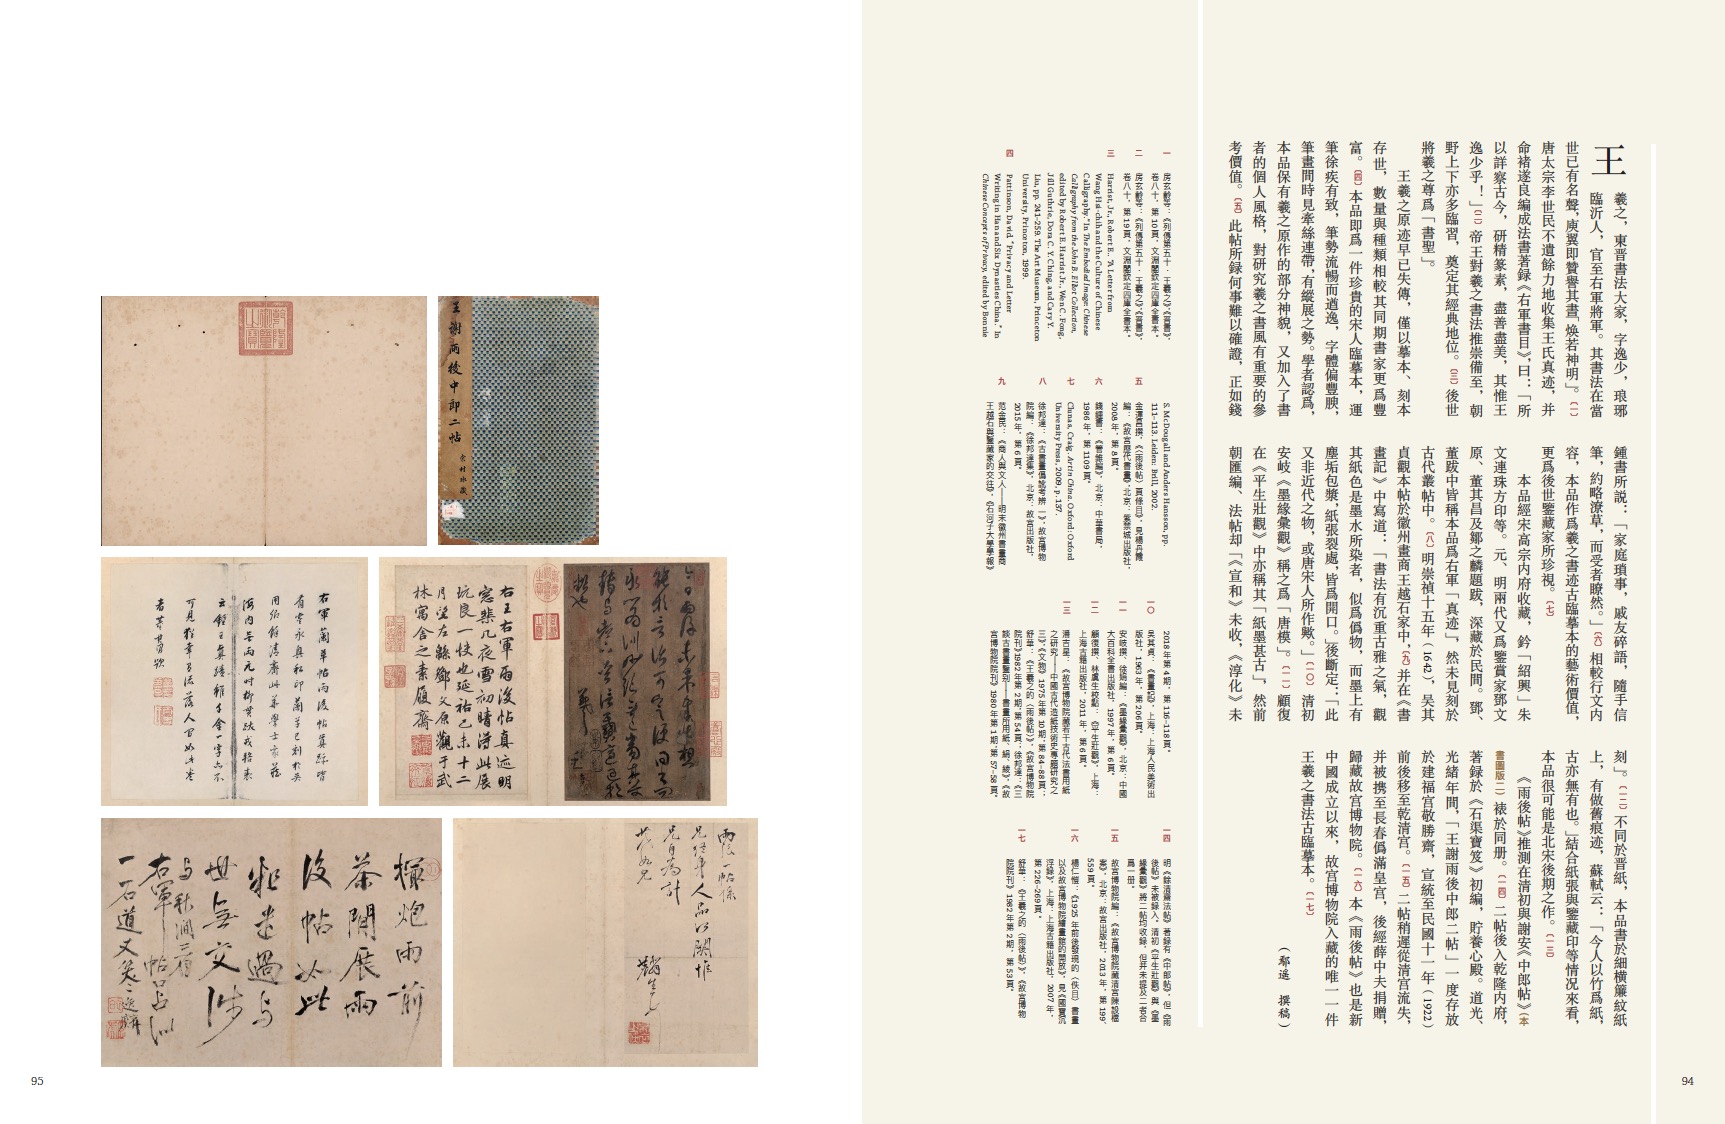 王羲之，東晋書法大家，字逸少，琅琊
臨沂人，官至右軍將軍。其書法在當
世已有名聲，庾翼即贊譽其書「煥若神明」。〔一〕
唐太宗李世民不遺餘力地收集王氏真迹，并
命褚遂良編成法書著録《右軍書目》，曰：「所
以詳察古今，研精篆素，盡善盡美，其惟王
逸少乎！」〔二〕帝王對羲之書法推崇備至，朝
野上下亦多臨習，奠定其經典地位。〔三〕後世
將羲之尊爲「書聖」。
王羲之原迹早已失傳，僅以摹本、刻本
存世，數量與種類相較其同期書家更爲豐
富。〔四〕本品即爲一件珍貴的宋人臨摹本，運
筆徐疾有致，筆勢流暢而遒逸，字體偏豐腴，
筆畫間時見牽絲連帶，有縱展之勢。學者認爲，
本品保有羲之原作的部分神貌，又加入了書
者的個人風格，對研究羲之書風有重要的參
考價值。〔五〕此帖所録何事難以確證，正如錢
鍾書所説：「家庭瑣事，戚友碎語，隨手信
筆，約略潦草，而受者瞭然。」〔六〕相較行文内
容，本品作爲羲之書迹古臨摹本的藝術價值，
更爲後世鑒藏家所珍視。〔七〕
本品經宋高宗内府收藏，鈐「紹興」朱
文連珠方印等。元、明兩代又爲鑒賞家鄧文
原、董其昌及鄒之麟題跋，深藏於民間。鄧、
董跋中皆稱本品爲右軍「真迹」，然未見刻於
古代叢帖中。〔八〕明崇禎十五年（1642），吴其
貞觀本帖於徽州畫商王越石家中，〔九〕并在《書
畫記》中寫道：「書法有沉重古雅之氣，觀
其紙色是墨水所染者，似爲僞物，而墨上有
塵垢包漿，紙張裂處，皆爲開口。」後斷定：「此
又非近代之物，或唐宋人所作歟。」〔一〇〕清初
安岐《墨緣彙觀》稱之爲「唐模」。〔一一〕顧復
在《平生壯觀》中亦稱其「紙墨甚古」，然前
朝匯編、法帖却「《宣和》未收，《淳化》未
刻」。〔一二〕不同於晋紙，本品書於細横簾紋紙
上，有做舊痕迹，蘇軾云：「今人以竹爲紙，
古亦無有也。」結合紙張與鑒藏印等情况來看，
本品很可能是北宋後期之作。〔一三〕
《雨後帖》推測在清初與謝安《中郎帖》（本
書圖版二）裱於同册。〔一四〕二帖後入乾隆内府，
著録於《石渠寶笈》初編，貯養心殿。道光、
光緒年間，「王謝雨後中郎二帖」一度存放
於建福宫敬勝齋，宣統至民國十一年（1922）
前後移至乾清宫。〔一五〕二帖稍遲從清宫流失，
并被携至長春僞滿皇宫，後經薛中夫捐贈，
歸藏故宫博物院。〔一六〕本《雨後帖》也是新
中國成立以來，故宫博物院入藏的唯一一件
王羲之書法古臨摹本。〔一七〕
（鄒遥　撰稿）
一　房玄齡等：《列傳第五十·王羲之》《晋書》，
卷八十，第10頁，文淵閣欽定四庫全書本。
二　房玄齡等：《列傳第五十·王羲之》《晋書》，
卷八十，第19頁，文淵閣欽定四庫全書本。
三　Harrist, Jr., Robert E.. "A Letter from
Wang Hsi-chih and the Culture of Chinese
Calligraphy." In The Embodied Image: Chinese
Calligraphy from the John B. Elliot Collection,
edited by Robert E. Harrist Jr., Wen C. Fong,
Jill Guthrie, Dora C. Y. Ching, and Cary Y.
Liu, pp. 241–259. The Art Museum, Princeton
University, Princeton, 1999.
四　Pattinson, David. "Privacy and Letter
Writing in Han and Six Dynasties China." In
Chinese Concepts of Privacy, edited by Bonnie
S. McDougall and Anders Hansson, pp.
111–113. Leiden: Brill, 2002.
五　金運昌撰：《〈雨後帖〉頁條目》，見楊丹霞
編：《故宫歷代書畫》，北京：紫禁城出版社，
2008年，第8頁。
六　錢鍾書：《管錐編》，北京：中華書局，
1986年，第1109頁。
七　Clunas, Craig. Art in China. Oxford: Oxford
University Press, 2009, p. 137.
八　徐邦達：《古書畫僞訛考辨（一）》，故宫博物
院編：《徐邦達集》，北京：故宫出版社，
2015年，第6頁。
九　范金民：《商人與文人——明末徽州書畫商
王越石與鑒藏家的交往》，《石河子大學學報》
2018年第4期，第116–118頁。
一〇　吴其貞：《書畫記》，上海：上海人民美術出
版社，1963年，第206頁。
一一　安岐撰，徐娟編：《墨緣彙觀》，北京：中國
大百科全書出版社，1997年，第6頁。
一二　顧復撰，林虞生校點：《平生壯觀》，上海：
上海古籍出版社，2011年，第6頁。
一三　潘吉星：《故宫博物院藏若干古代法書用紙
之研究——中國古代造紙技術史專題研究之
三》，《文物》1975年第10期，第84–88頁；
舒華：《王羲之的〈雨後帖〉》，《故宫博物院
院刊》1982年第2期，第54頁；徐邦達：《三
談古書畫鑒别——書畫所用紙、絹、綾》，《故
宫博物院院刊》1980年第1期，第57–58頁。
一四　明《餘清齋法帖》著録有《中郎帖》，但《雨
後帖》未被録入。清初《平生壯觀》與《墨
緣彙觀》將二帖均收録，但并未提及二者合
爲一册。
一五　故宫博物院編：《故宫博物院藏清宫陳設檔
案》，北京：故宫出版社，2013年，第199、
559頁。
一六　楊仁愷：《1925年前後發現的〈佚目〉書畫
以及故宫博物院繪畫館的開放》，見《國寶沉
浮録》，上海：上海古籍出版社，2007年，
第226–269頁。
一七　舒華：《王羲之的〈雨後帖〉》，《故宫博物
院院刊》1982年第2期，第53頁。
94
王謝兩後中郎二帖
右王右軍雨後帖真迹明
窓棐几夜雪初晴得此展
玩良一快也延祐己未十二
月望左緜鄧文原觀于武
林寓舍之素履齋
雨後一帖係
人品
櫂炮雨前
茶閒展雨
後帖以此
世無交涉
95